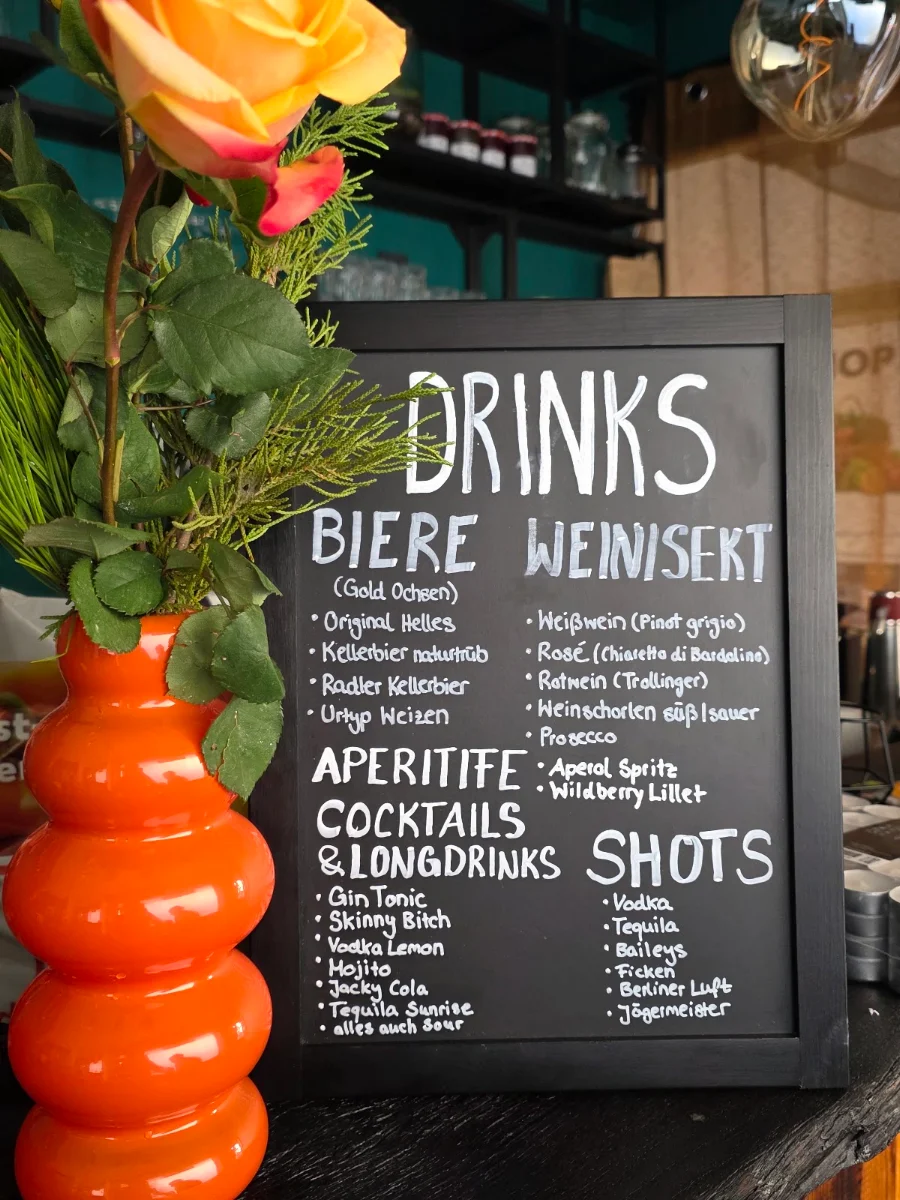 DRINKS
BIERE
(Gold Ochsen)
• Original Helles
• Kellerbier naturtrüb
• Radler Kellerbier
• Urtyp Weizen
WEIN|SEKT
• Weißwein (Pinot grigio)
• Rosé (Chiaretto di Bardolino)
• Rotwein (Trollinger)
• Weinschorlen süß|sauer
• Prosecco
• Aperol Spritz
• Wildberry Lillet
APERITIFE
COCKTAILS
& LONGDRINKS
• Gin Tonic
• Skinny Bitch
• Vodka Lemon
• Mojito
• Jacky Cola
• Tequila Sunrise
• alles auch Sour
SHOTS
• Vodka
• Tequila
• Baileys
• Ficken
• Berliner Luft
• Jägermeister